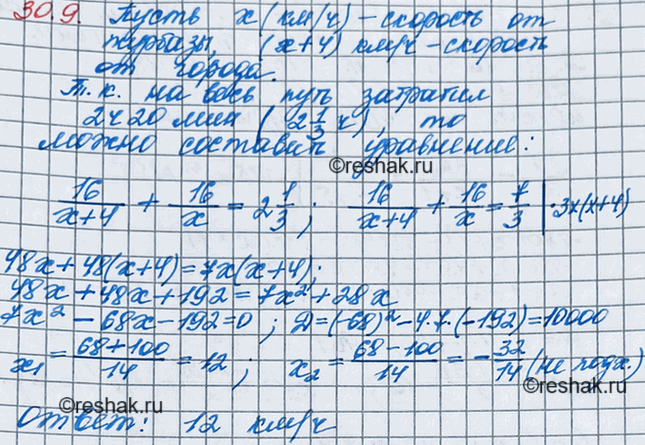 30.9. Пусть x (км/ч) - скорость от
турбазы, (x+4) км/ч - скорость
от города.
Т.к. на весь путь затратил
2ч 20 мин (2 1/3 ч), то
можно составить уравнение:
©reshak.ru
16/(x+4) + 16/x = 2 1/3; 16/(x+4) + 16/x = 7/3 | ·3x(x+4)
48x + 48(x+4) = 7x(x+4);
48x + 48x + 192 = 7x² + 28x
7x² - 68x - 192 = 0; D = (-68)² - 4·7·(-192) = 10000
x₁ = (68+100)/14 = 12; x₂ = (68-100)/14 = -32/14 (не подх.)
©reshak.ru
©reshak.ru
Ответ: 12 км/ч